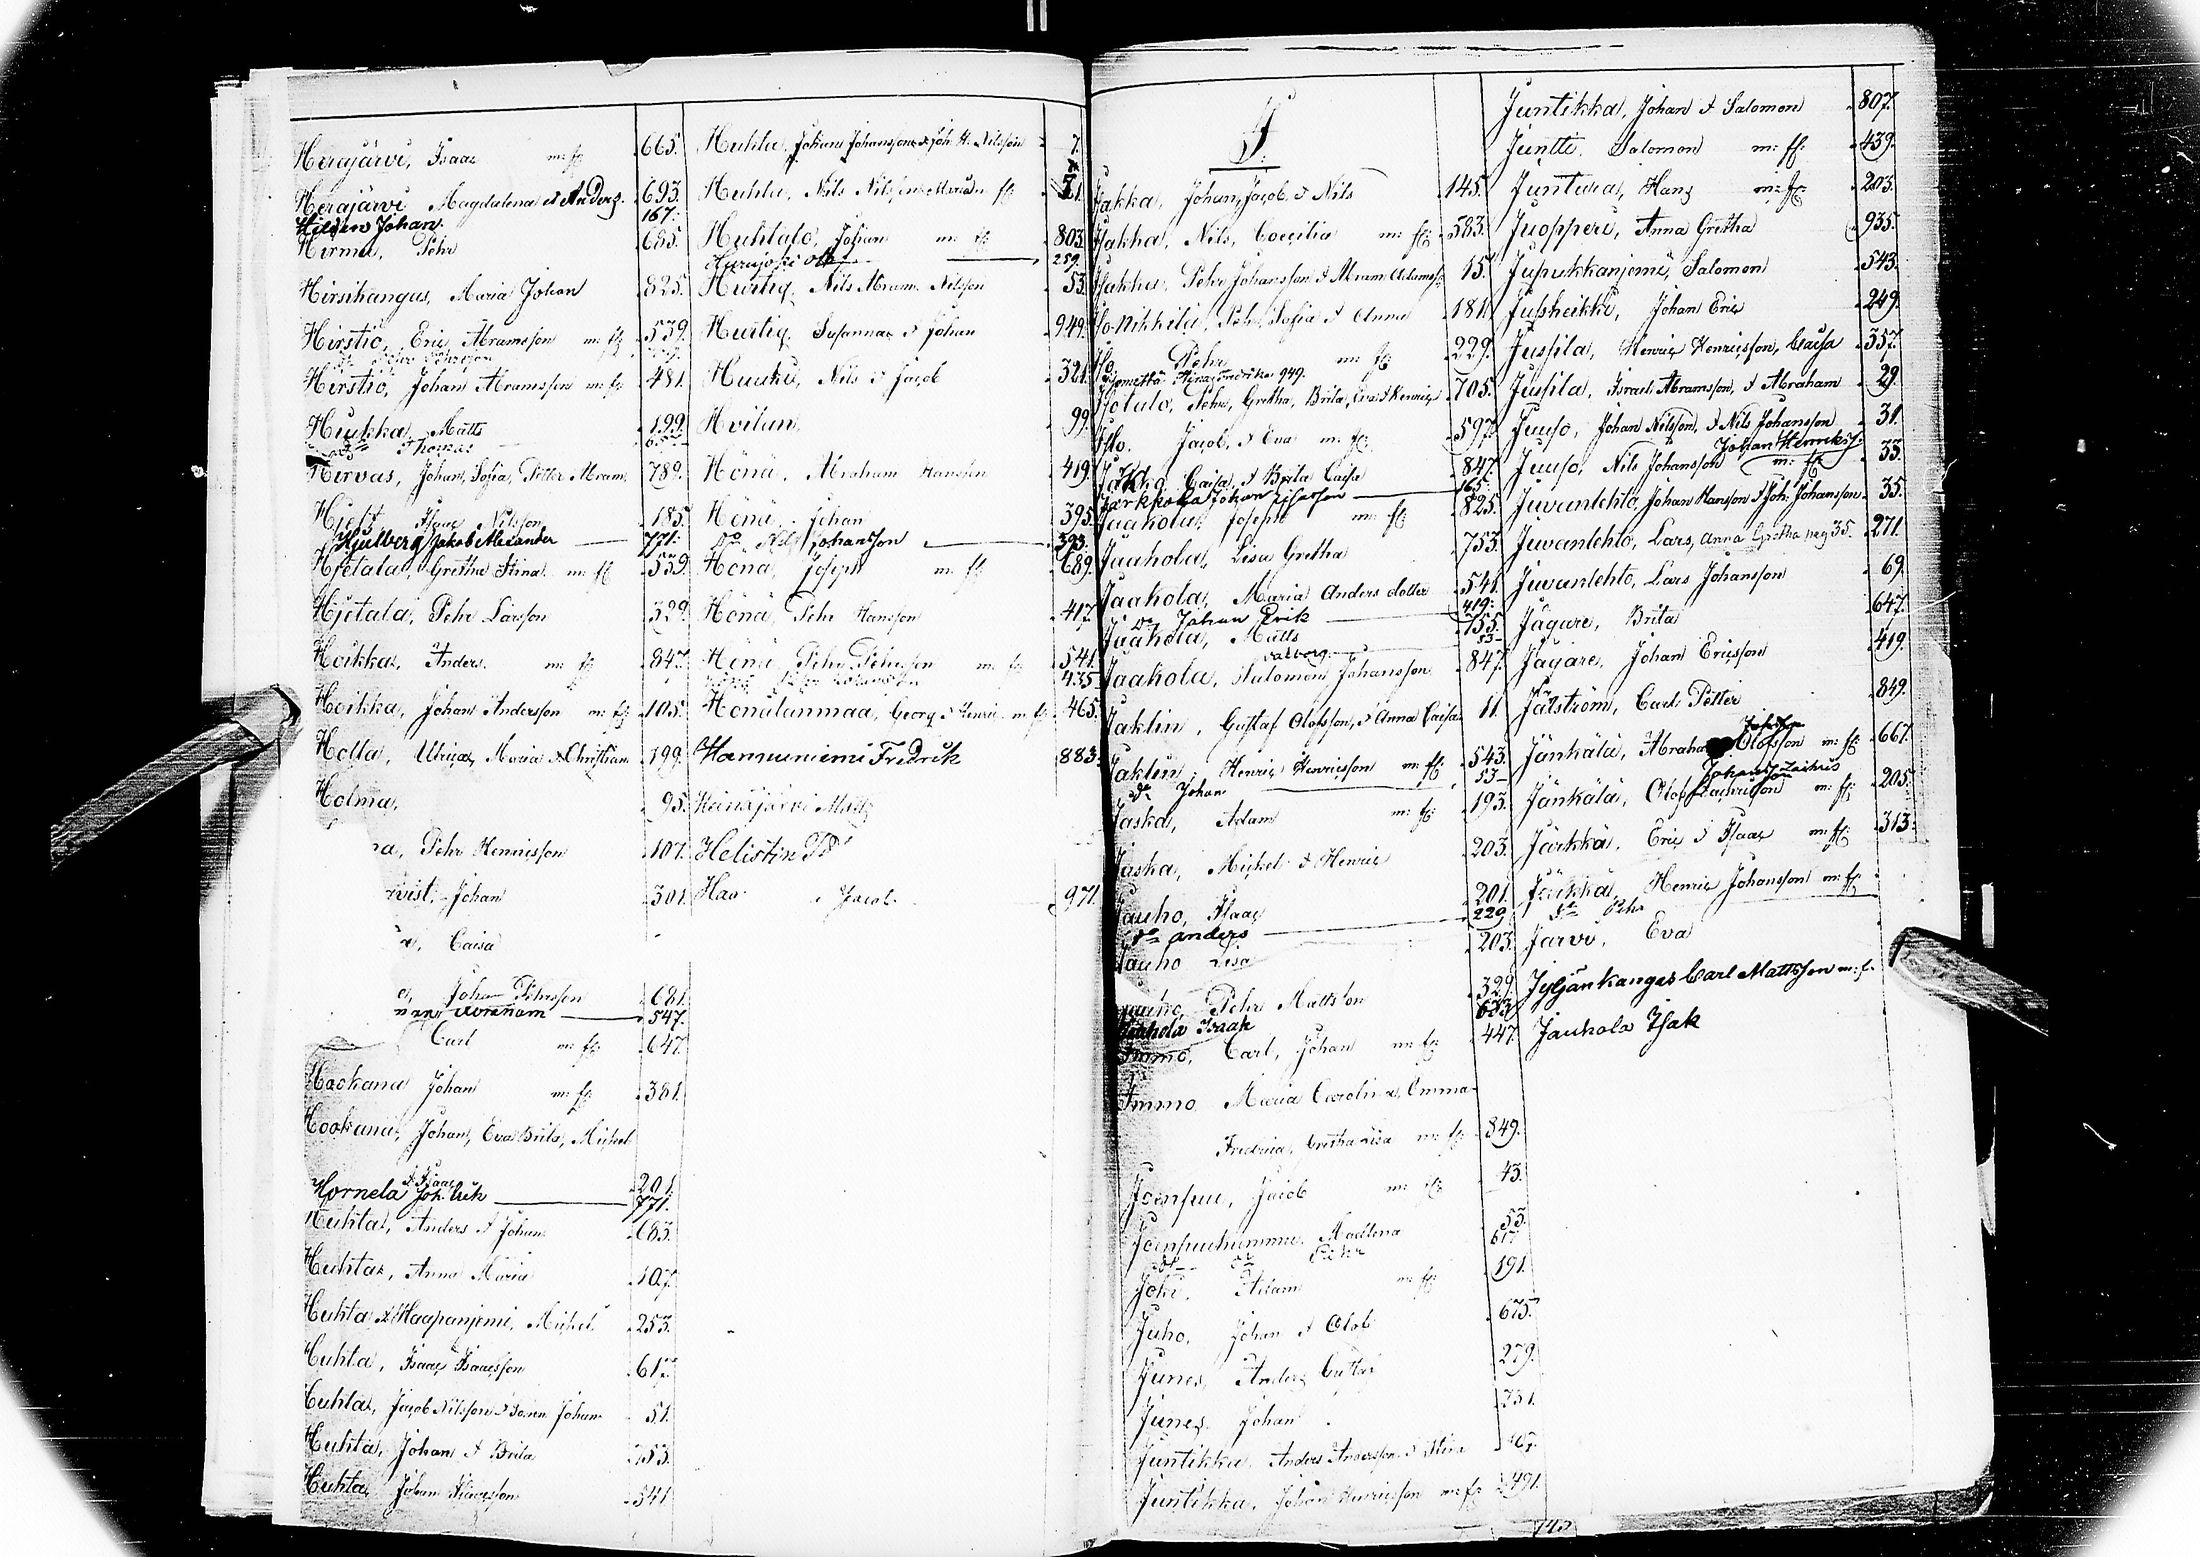 Herajärvi, Isaac m: fl: 665.
Herajärvi Magdalena & Anders. 693.
Hilden Johan. 167.
Hirma, Pehr 685.
Hirsikangas, Maria Johan 825.
Hirstiö, Eric Abramsson m: fl: 539.
Hirstiö, Johan Abramsson m: fl: 481.
Hiukka, Matts 199.
Thomas
Hirvas, Johan, Sofia, Petter Abram. 789.
Hjelt, Isaac Nilsson 185.
Hjulberg Jakob Alexander 771.
Hjetala, Gretha Stina m: fl: 559.
Hjetala, Pehr Larsson 329.
Hoikka, Anders. m: fl: 847.
Hoikka, Johan Andersson m: fl: 105.
Holla, Ulrica, Maria & Christian 199.
Holma, 95.
Pehr Henricsson 107.
Johan 301.
Caisa
Johan Pehrsson 681.
Abraham 547.
Carl m: fl: 647.
Hookana Johan m: fl: 381.
Hookana, Johan, Eva Brita, Michel
& Isaac 201.
Hornela Joh. Erik 771.
Huhta, Anders & Johan 683.
Huhta, Anna Maria 107.
Huhta & Haapanjemi, Michel 253.
Huhta, Isaac Isaacsson 617.
Huhta, Jacob Nilsson & Johan 51.
Huhta, Johan & Brita 753.
Huhta, Johan Isaacsson 541.
Huhta, Johan Johansson & Joh: H. Nilsson 7.
Huhta, Nils Nilsson fl: 51.
Huhtalo, Johan m: fl: 803.
259.
Hurtig, Nils Abram Nilsson 53.
Hurtig, Susanna & Johan 949.
Huuki, Nils & Jacob 321.
Hvilan 99.
Hönä, Abraham Hansson 419.
Hönä, Johan 395.
Do Nils Johansson 393.
Hönä, Joseph m: fl: 689.
Hönä, Pehr Hansson 417.
Hönä, Pehr Pehrsson m: fl: 541.
435
Hönälanmaa, Georg & Henric m: fl: 465.
Hamuniemi Fredrik 883.
Heinäjärvi Matts
Helistin
Hao Jacob. 971.
J.
Jakka, Johan, Jacob, & Nils 145.
Jakka, Nils, Coecilia m: fl: 583.
Jakka, Pehr Johansson & Abram Adamss. 15.
Iso-Nikkilä, Pehr, Sofia & Anna 181.
Iso Pehr m: fl: 229.
Stina Fredrika 949.
Isotalo, Pehr, Gretha, Brita, Eva & Henric 705.
Isto. Jacob, & Eva m: fl: 597.
Jakko Caisa, & Brita Caisa 847.
Jarkkola Johan 165.
Jaakola, Joseph m: fl: 825.
Jaakola, Lisa Gretha 753.
Jaakola, Maria Anders dotter 541.
Do Johan Erik 419.
Jaakola, Matts 155.
53
Jaakola, Salomon Johansson 847.
Jaklin, Gustaf Olofsson, & Anna Caisa 11.
Jaklin, Henric Henricsson m: fl: 543.
Do Johan 53
Jaska, Adam m: fl: 193.
Jaska, Michel & Henric 203.
Jauho, Isaac 201.
Do Anders 229
Jauho Lisa 203.
Jauho, Pehr Mattsson 329.
Isaak 683
Immo, Carl, Johan m: fl: 447.
Immo Maria Carolina, Emma
Fredrica, Gretha Lisa m: fl: 849.
Joenpuu, Jacob m: fl: 43.
Joenpuuhummu. Madlena 53.
Pehr 617
Joki, Adam m: fl: 191.
Juho, Johan & Olof 675.
Junes, Anders Gustaf 279.
Junes, Johan 751.
Juntikka Anders Andersson & Stina
Juntikka, Johan Henricsson m: fl: 491.
Juntikka, Johan & Salomon 807.
Juntti, Salomon m: fl: 439.
Juntura, Hans m: fl: 203.
Juopperi, Anna Gretha 935.
Jupukkanjemi, Salomon 543.
Jussheikki, Johan Eric 249.
Jussila, Henric Henricsson, Caisa 357.
Jussila, Israel Abramsson, & Abraham 29.
Juuso, Johan Nilsson, & Nils Johansson 31.
Johan Henriks S:
Juuso, Nils Johansson m: fl: 33.
Juvanlehto, Johan Hansson & Joh: Johansson 35.
Juvanlehto, Lars, Anna Gretha pag 35. 271.
Juvanlehto, Lars Johansson 69.
Jägare, Brita 647.
Jägare, Johan Ericsson 419.
Jälström, Carl Petter 849.
Jänkälä, Abraham Olofsson m: fl: 667.
Jänkälä, Olof Zachrisson m: fl: 205.
Järkkä, Eric & Isaac m: fl: 313.
Jäukkä, Henric Johansson m: fl:
Do Pehr
Järvi, Eva
Jyljänkangas Carl Mattsson m: f.
Jauhola Isak